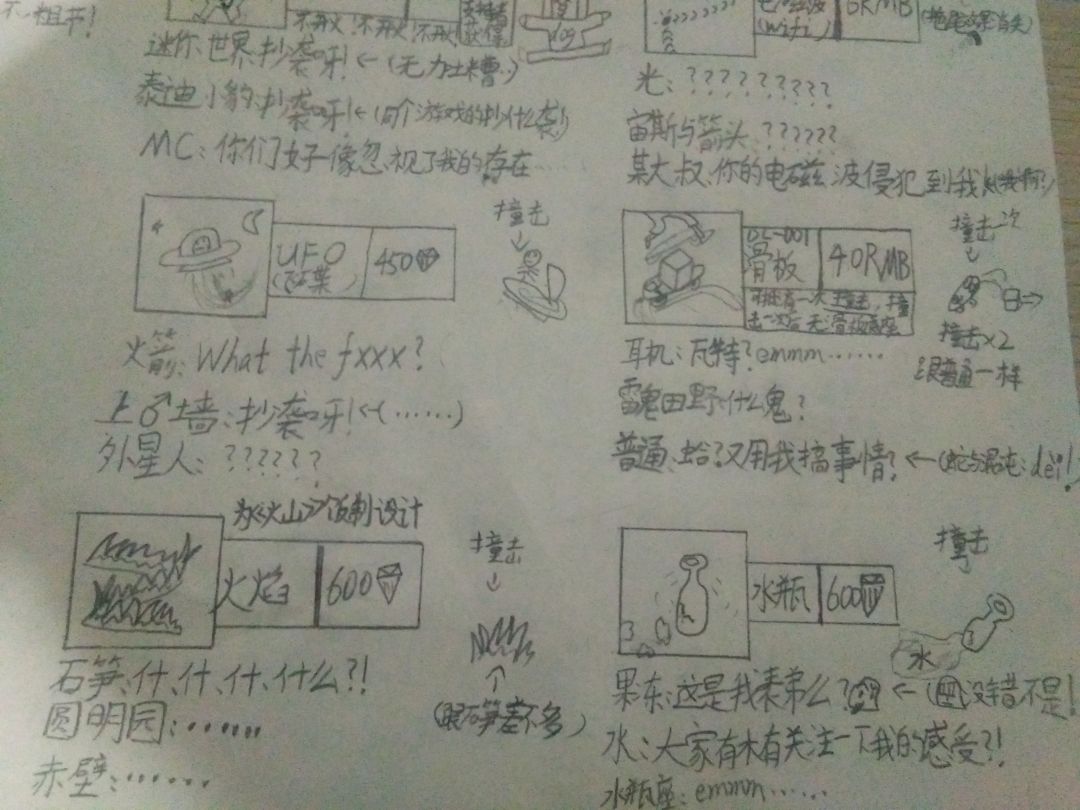 不一粗节!
不开火 不开火 不开火
迷你世界:抄袭呀!←(无力吐槽..)
泰迪小豹:抄袭呀!←(同个游戏的抄什么袭!)
MC:你们好像忽视了我的存在……
(wifi)
6RMB
光:?????????
宙斯与箭头:??????
某大叔:你的电磁波侵犯到我
UFO
450
撞击
火箭:What the fxxx?
上♂墙:抄袭呀!←(……)
外星人:??????
DL-001
骨板
40RMB
撞击一次
撞击x2
跟普通一样
耳机:瓦特?emmm……
雷鬼田野:什么鬼?
普通:蛤?又用我搞事情?←
为《火山》饭制设计
火焰
600
撞击
(跟石笋差不多)
石笋:什、什、什、什么?!
圆明园:……
赤壁:……
水瓶
600
撞击
水
果冻:这是我表弟么?←(没错不是!
水:大家有木有关注一下我的感受?!
水瓶座:emmm……